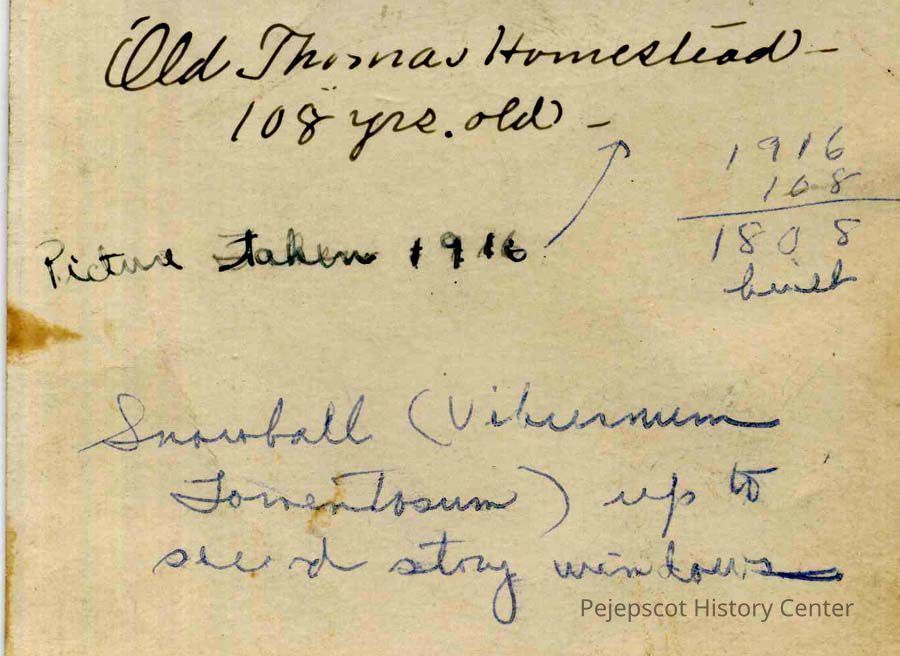 Old Thomas Homestead -
108 yrs. old -
1916
108
1808
built
Picture taken 1916
Snowball (Viburnum
Tomentosum) up to
second story windows
Pejepscot History Center